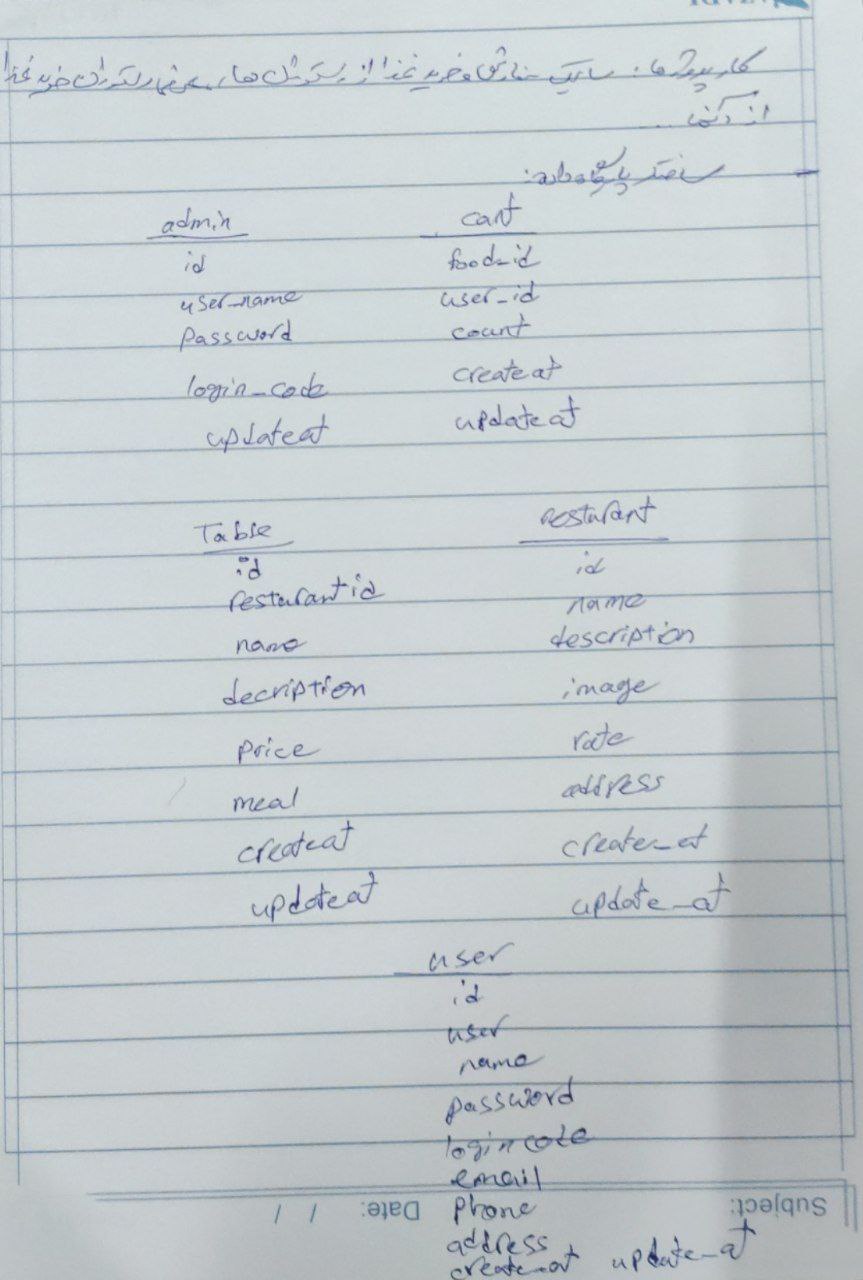 کاربردها: سایت سفارش و خرید غذا از رستوران ها، معرفی رستوران خرید غذا
از آنها...
ساختار پایگاه داده:
admin
id
user_name
password
login_code
updateat
cart
food_id
user_id
count
createat
updateat
Table
id
resturant id
name
decription
price
meal
createat
updateat
resturant
id
name
description
image
rate
address
create_at
update_at
user
id
user
name
password
login code
email
phone
address
create_at update_at
Subject:
Date: / /